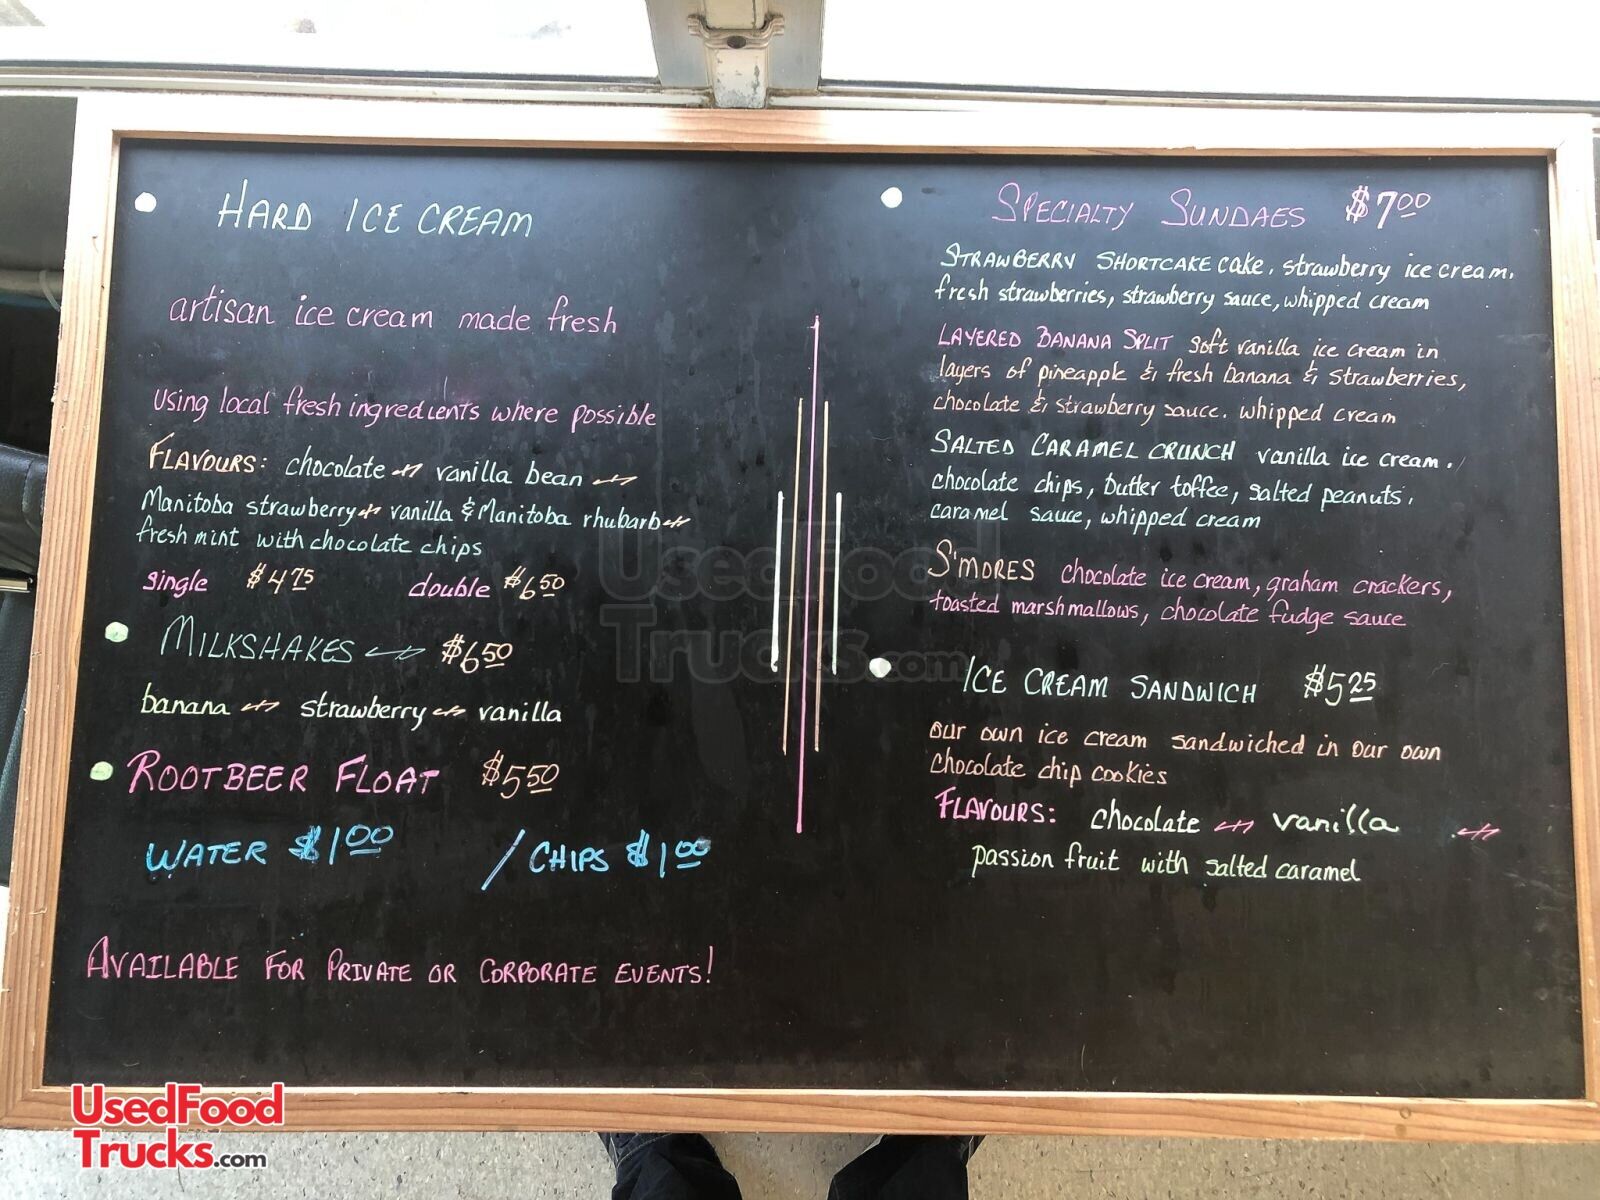 HARD ICE CREAM
artisan ice cream made fresh
using local fresh ingredients where possible
FLAVOURS: chocolate vanilla bean
Manitoba strawberry vanilla & Manitoba rhubarb
fresh mint with chocolate chips
single $4.75 double $6.50
MILKSHAKES $6.50
banana strawberry vanilla
ROOTBEER FLOAT $5.50
WATER $1.00 / CHIPS $1.00
AVAILABLE FOR PRIVATE OR CORPORATE EVENTS!
SPECIALTY SUNDAES $7.00
STRAWBERRY SHORTCAKE cake, strawberry ice cream,
fresh strawberries, strawberry sauce, whipped cream
LAYERED BANANA SPLIT soft vanilla ice cream in
layers of pineapple & fresh banana & strawberries,
chocolate & strawberry sauce. whipped cream
SALTED CARAMEL CRUNCH vanilla ice cream,
chocolate chips, butter toffee, salted peanuts,
caramel sauce, whipped cream
S'MORES chocolate ice cream, graham crackers,
toasted marshmallows, chocolate fudge sauce
ICE CREAM SANDWICH $5.25
our own ice cream sandwiched in our own
chocolate chip cookies
FLAVOURS: chocolate vanilla
passion fruit with salted caramel
UsedFood
Trucks.com
UsedFood
Trucks.com